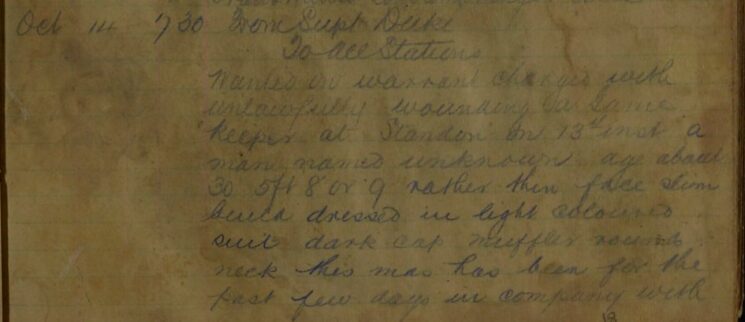 Oct 14 730 From Supt Duke
To all Stations
Wanted on warrant charged with
unlawfully wounding a Game
keeper at Standon on 13th inst a
man named unknown age about
30 5ft 8 or 9 rather thin face slim
build dressed in light coloured
suit dark cap muffler round
neck this man has been for the
past few days in company with